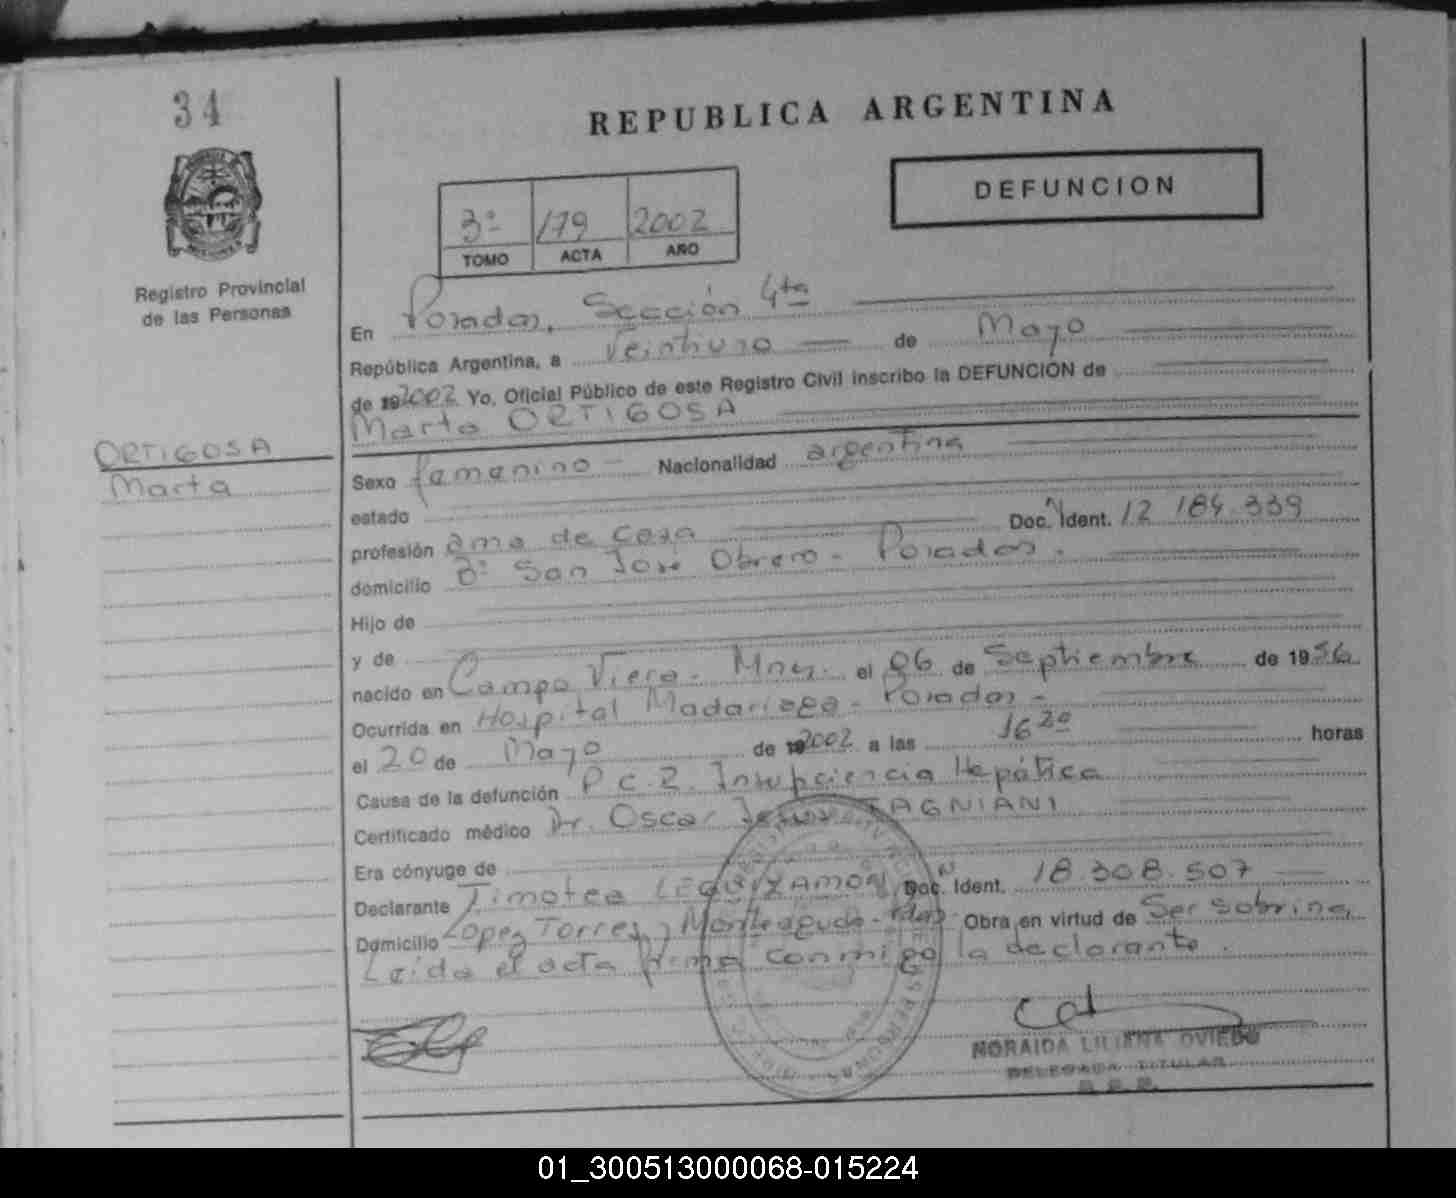 34
REPUBLICA ARGENTINA
DEFUNCION
3º 179 2002
TOMO ACTA AÑO
Registro Provincial
de las Personas
ORTIGOSA
Marta
En Posadas, Sección 4ta
República Argentina, a Veintiuno de Mayo
de 2002 Yo, Oficial Público de este Registro Civil inscribo la DEFUNCIÓN de
Marta ORTIGOSA
Sexo femenino - Nacionalidad argentina
estado
profesión ama de casa Doc. Ident. 12 184.339
domicilio Bº San José Obrero - Posadas.
Hijo de
y de
nacido en Campo Viera - Mnes. el 06 de Septiembre de 1956
Ocurrida en Hospital Madariaga - Posadas -
el 20 de Mayo de 2002 a las 16 30 horas
Causa de la defunción P.C.R. Insuficiencia Hepática
Certificado médico Dr. Oscar Jesus TAGNIANI
Era cónyuge de
Declarante Timotea LEGUIZAMON Doc. Ident. 18.308.507
Domicilio Lopez Torres y Monteagudo - Pdas. Obra en virtud de Ser sobrina
Leída el acta firma conmigo la declarante.
NORAIDA LILIANA OVIEDO
DELEGADA TITULAR
01_300513000068-015224